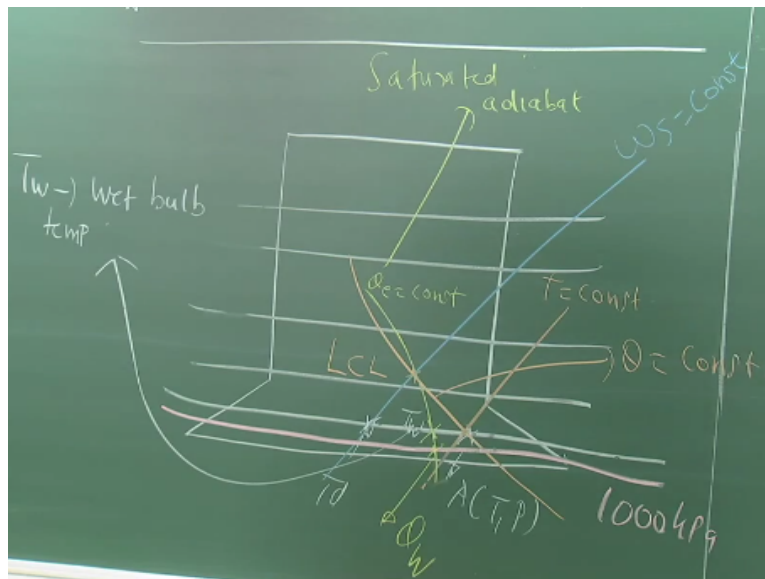 Saturated
adiabat
ωs=const
Tw→ Wet bulb
temp
θe=const
T=const
LCL
θ= Const
Tw
Td
A(T,P)
1000hPa
θw